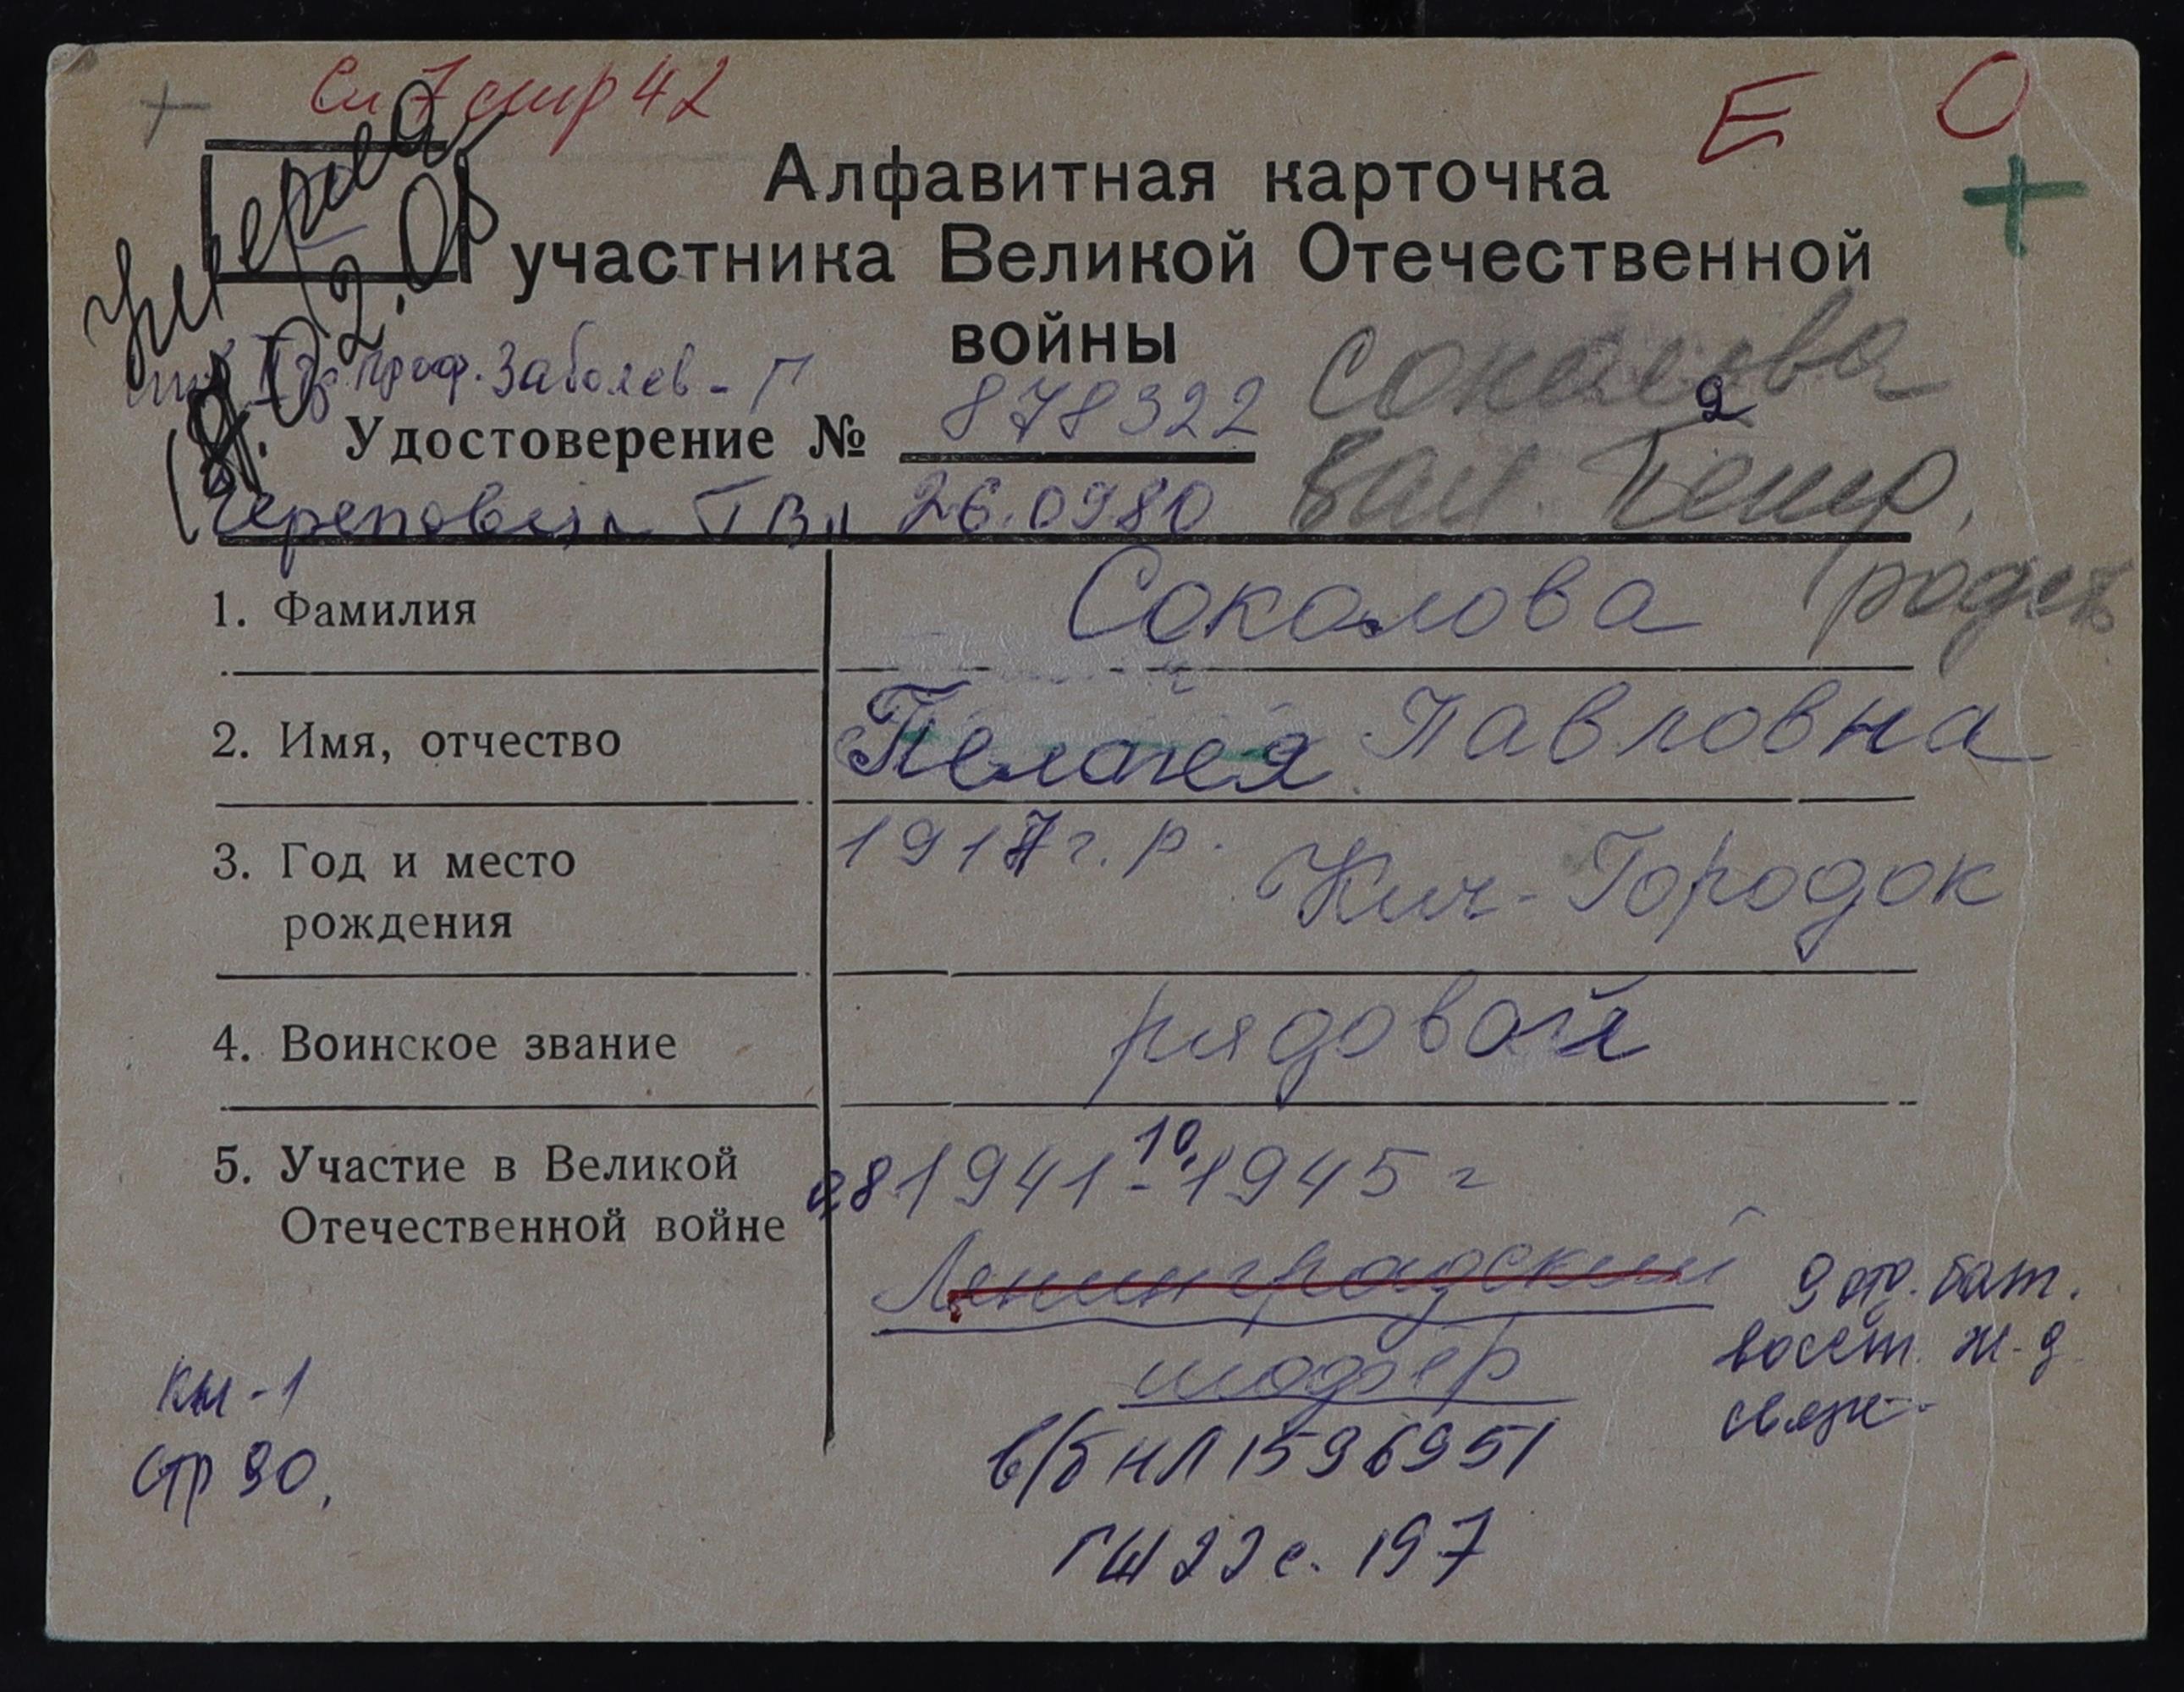 +
См 7 стр 42
Е О
+
Умерла
18.02.08
Алфавитная карточка
участника Великой Отечественной
войны
Проф. Заболев - Г
Соколова
Удостоверение № 878322
Вал. Петр.
Череповецк ГВК 26.0980
1. Фамилия Соколова
2. Имя, отчество Пелагея Павловна
3. Год и место 1917 г. р. Кич-Городок
рождения
4. Воинское звание рядовой
5. Участие в Великой 08 1941 - 10. 1945 г
Отечественной войне
Ленинградский 9 отд. бат.
шофер восст. ж-д
связи
Кн-1
в/б НЛ 1596951
стр 90.
ГШ 22 с. 197